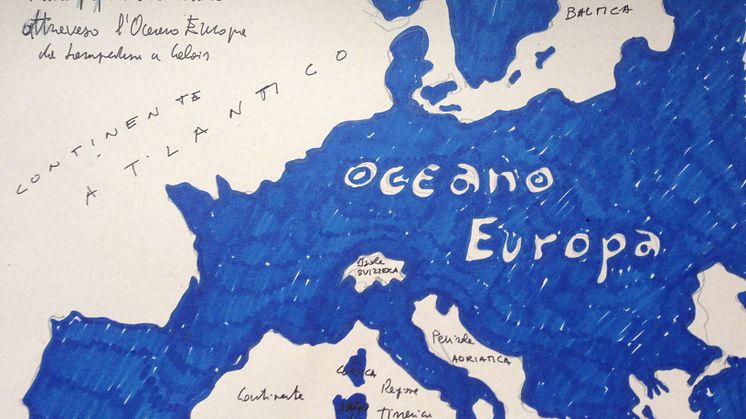 attraverso l'Oceano Europa
da Lampedusa a Calais
BALTICA
CONTINENTE
ATLANTICO
OCEANO
EUROPA
Isola
SVIZZERA
Penisola
ADRIATICA
CORSICA
Continente
Regione
Tirrenica